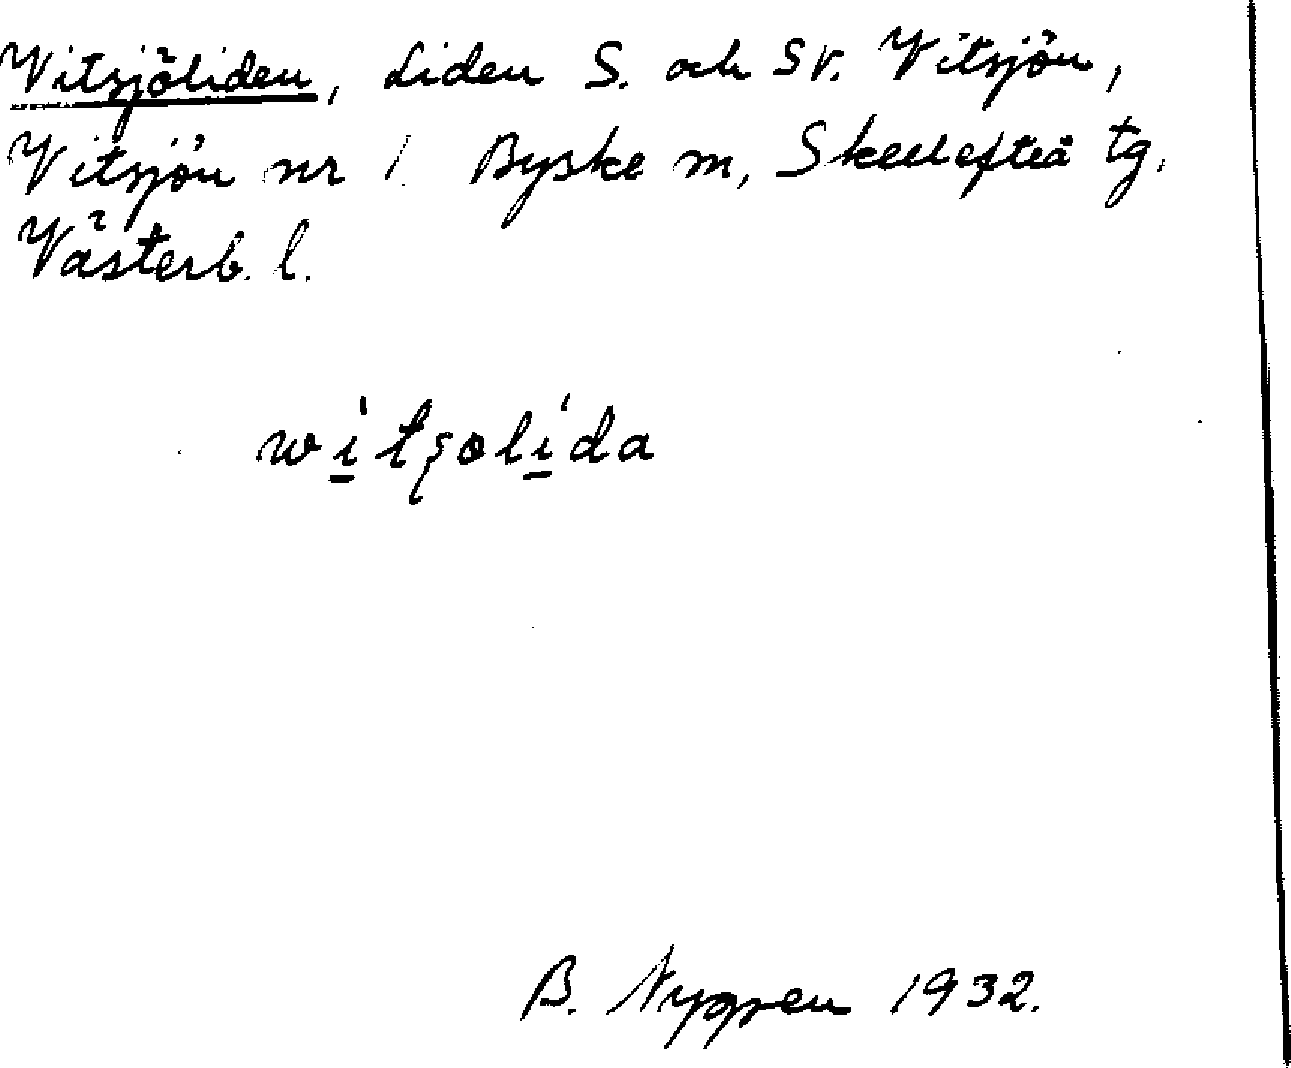 Vitsjöliden, Liden S. och Sv. Vitsjön,
Vitsjön nr 1. Byske m, Skellefteå tg.
Västerb. l.
wi̲tʂoli̲da
B. Nygren 1932.